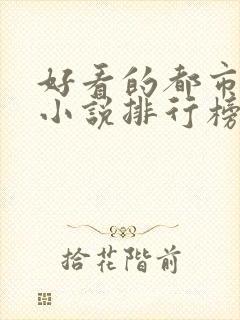 好看的都市
小说排行榜
拾花阶前